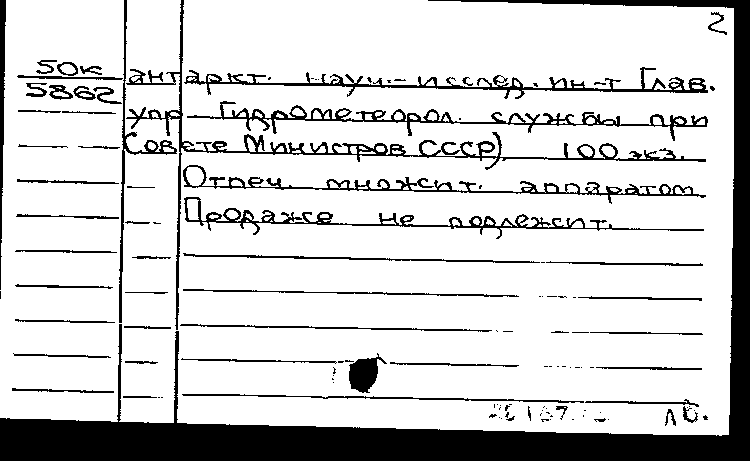 2
50к антаркт. науч.-исслед. ин-т Глав.
5862 упр. Гидрометеорол. службы при
Совете Министров СССР) 100 экз.
Отпеч. множит. аппаратом.
Продаже не подлежит.
ЛБ.